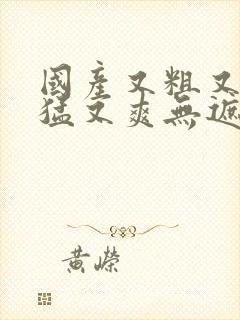 國產又粗又
猛又爽無遮
黃嶸